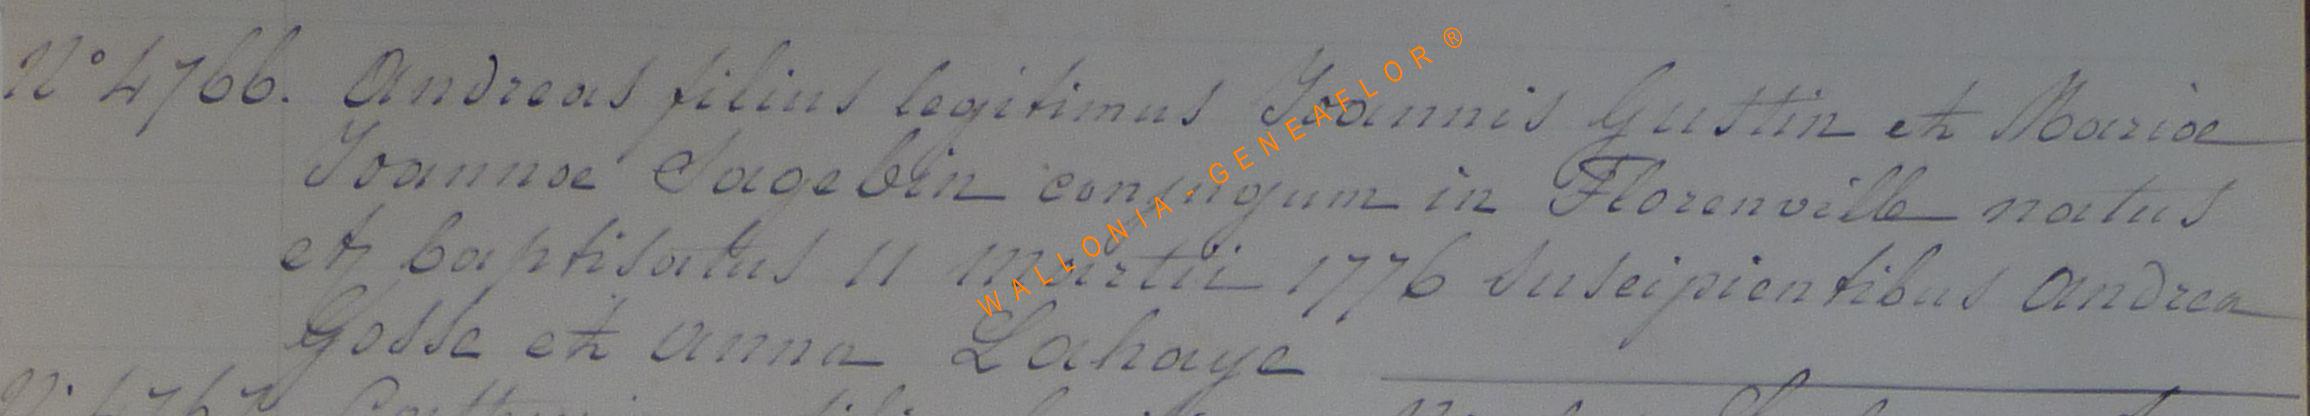 N° 4766. Andreas filius legitimus Joannis Gustin et Mariae
Joannae Sagebin conjugum in Florenville natus
et baptisatus 11 martii 1776 suscipientibus Andrea
Gosse et Anna Lahaye
N° 4767
WALLONIA - GENEAFLOR ®